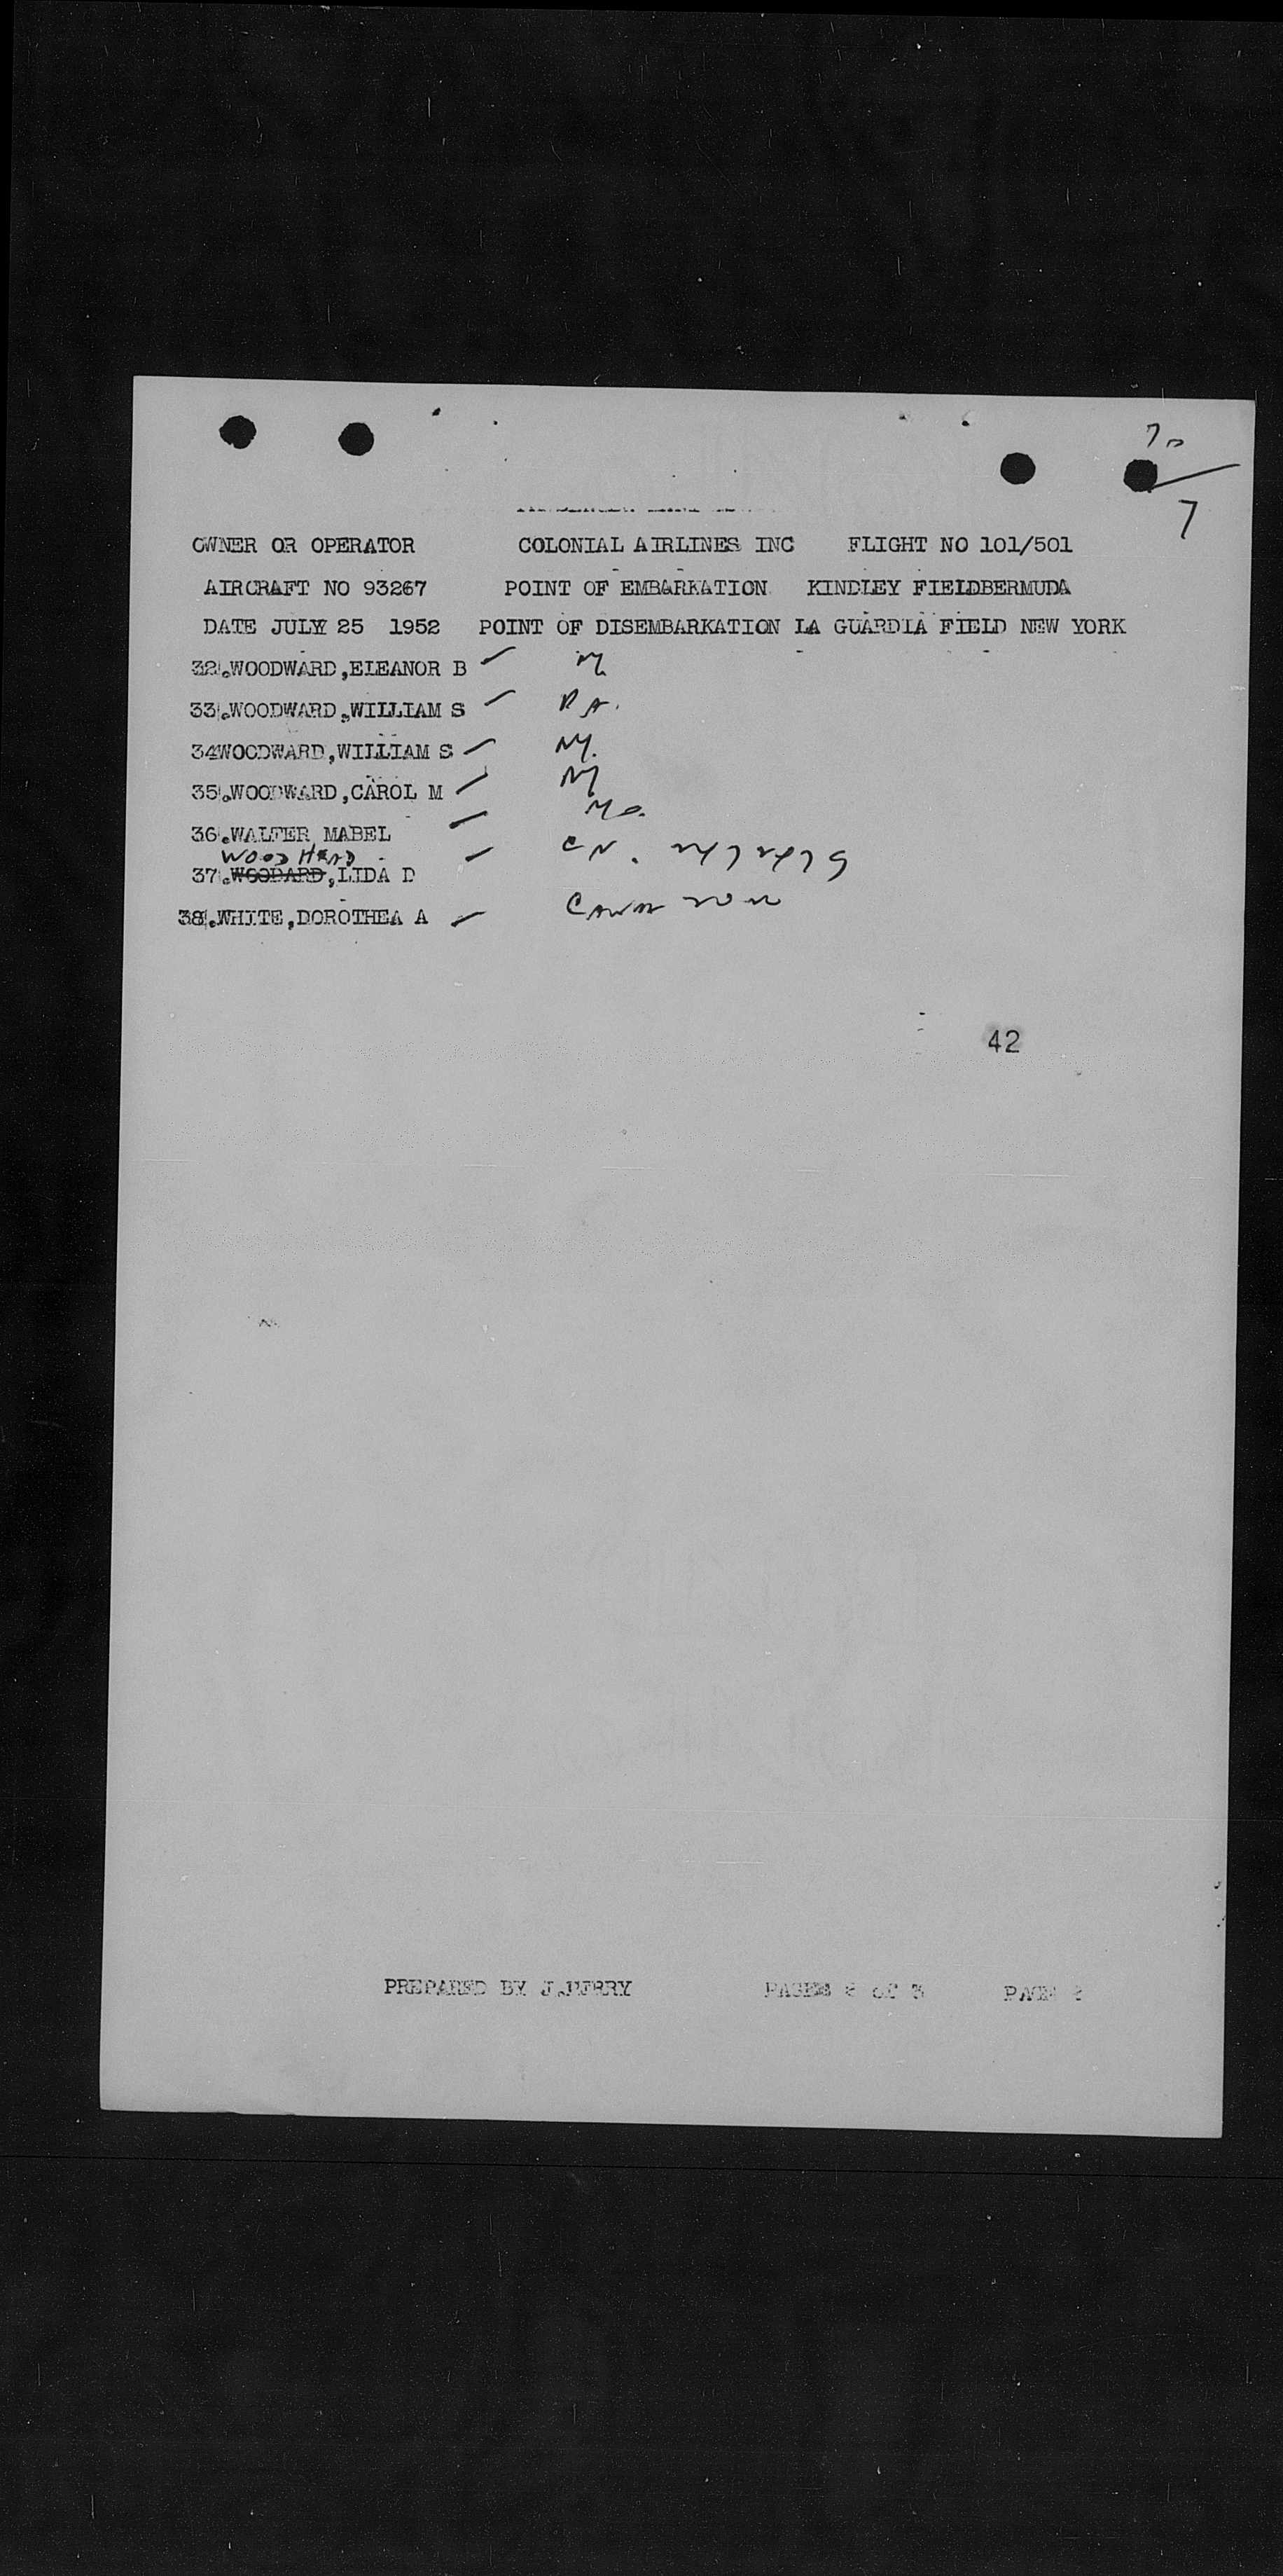 70
7
OWNER OR OPERATOR COLONIAL AIRLINES INC FLIGHT NO 101/501
AIRCRAFT NO 93267 POINT OF EMBARKATION KINDLEY FIELDBERMUDA
DATE JULY 25 1952 POINT OF DISEMBARKATION LA GUARDIA FIELD NEW YORK
32.WOODWARD,ELEANOR B NY
33.WOODWARD,WILLIAM S PA.
34WOODWARD,WILLIAM S NY.
35.WOODWARD,CAROL M NY
36.WALTER MABEL MO.
WOODHEAD
37.WOODARD,LIDA D
38.WHITE,DOROTHEA A
42
PREPARED BY J.PERRY PAGES OF 3 PAGE